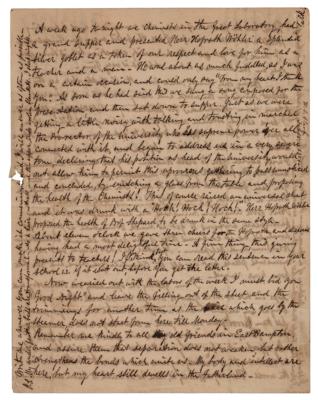 A week ago to night we chemists in the Great Laboratory, had
a grand supper and presented Herr Hofrath Wöhler a splendid
silver goblet as a token of our respect and love for him as a
teacher and a man. He was about as much puddled as I was
on a certain occasion and could only say "from my heart I thank
you." As soon as he had said this we sung a song composed for the
presentation and then sat down to supper. Just as we were
getting a little noisy with talking and toasting in marched
the Prorector of the University who has supreme power over all
connected with it, and began to address us in a very severe
tone, declaring that his position as head of the University would
not allow him to permit this uproarous gathering to pass unnoticed
and concluded, by snatching a glass from the table and proposing
the health of the Chemists! This of course raised an universal shout
and it was drunk with a "Hoch! Hoch! Hoch!". Herr Hofrath Wöhler
proposed the health of Prof Shepard, & it drank in the same style.
About eleven o'clock we gave three cheers for the Hofrath and dispersed
having had a most delightful time. A fine thing this giving
presents to teachers! I think you can read this sentence in your
school if it is not out before you get the letter.
Now wearied out with the labors of the week I must bid you
Good night and leave the filling out of the sheet and the
trimmings for another time as the which goes by the
steamer does not start from here till Monday.
Remember me kindly to all my friends in East Hampton
and assure them that separation does not weaken but rather
strengthens the bonds which unite us. My body and intellect are
here, but my heart still dwells in the Fatherland.